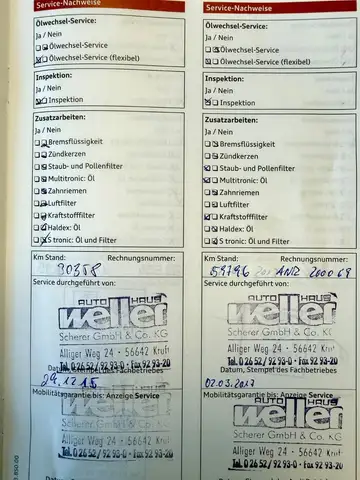 Service-Nachweise
Ölwechsel-Service:
Ja / Nein
Ölwechsel-Service
Ölwechsel-Service (flexibel)
Inspektion:
Ja / Nein
Inspektion
Zusatzarbeiten:
Ja / Nein
Bremsflüssigkeit
Zündkerzen
Staub- und Pollenfilter
Multitronic: Öl
Zahnriemen
Luftfilter
Kraftstofffilter
Haldex: Öl
S tronic: Öl und Filter
Km Stand: Rechnungsnummer:
30358
Service durchgeführt von:
AUTO HAUS
weller
Scherer GmbH & Co. KG
Alliger Weg 24 · 56642 Kruft
Tel. 0 26 52 / 92 93-0 · Fax 92 93-20
Datum, Stempel des Fachbetriebes
29.12.15
Mobilitätsgarantie bis: Anzeige Service
AUTO HAUS
weller
Scherer GmbH & Co. KG
Alliger Weg 24 · 56642 Kruft
Tel. 0 26 52 / 92 93-0 · Fax 92 93-20
Service-Nachweise
Ölwechsel-Service:
Ja / Nein
Ölwechsel-Service
Ölwechsel-Service (flexibel)
Inspektion:
Ja / Nein
Inspektion
Zusatzarbeiten:
Ja / Nein
Bremsflüssigkeit
Zündkerzen
Staub- und Pollenfilter
Multitronic: Öl
Zahnriemen
Luftfilter
Kraftstofffilter
Haldex: Öl
S tronic: Öl und Filter
Km Stand: Rechnungsnummer:
59796
Service durchgeführt von:
AUTO HAUS
weller
Scherer GmbH & Co. KG
Alliger Weg 24 · 56642 Kruft
Tel. 0 26 52 / 92 93-0 · Fax 92 93-20
Datum, Stempel des Fachbetriebes
02.03.2017
Mobilitätsgarantie bis: Anzeige Service
AUTO HAUS
weller
Scherer GmbH & Co. KG
Alliger Weg 24 · 56642 Kruft
Tel. 0 26 52 / 92 93-0 · Fax 92 93-20